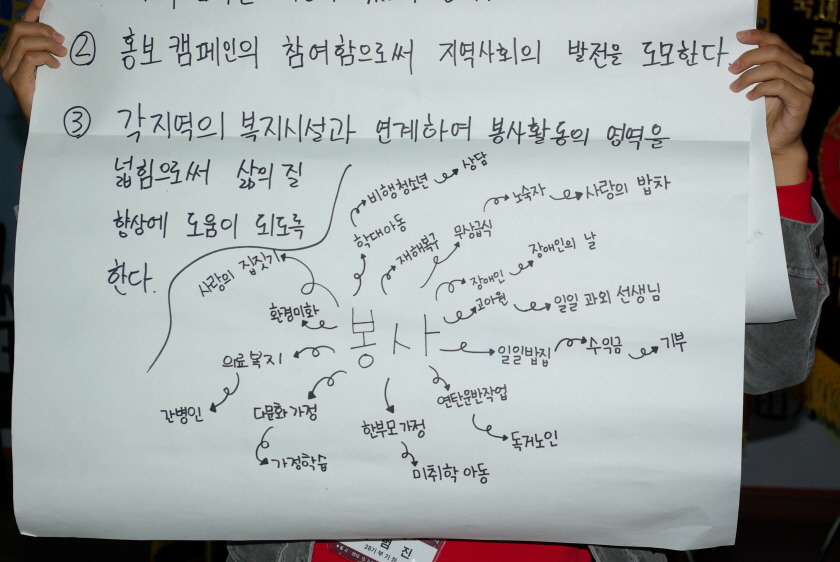 ② 홍보 캠페인의 참여함으로써 지역사회의 발전을 도모한다.
③ 각 지역의 복지시설과 연계하여 봉사활동의 영역을
넓힘으로써 삶의 질
향상에 도움이 되도록
한다.
비행청소년 상담
학대아동
재해복구
무상급식 노숙자 사랑의 밥차
사랑의 집짓기
장애인 장애인의 날
고아원 일일 과외 선생님
환경미화
봉사
일일밥집 수익금 기부
의료복지
간병인
다문화 가정
가정학습
한부모 가정
미취학 아동
연탄운반작업
독거노인
범 진